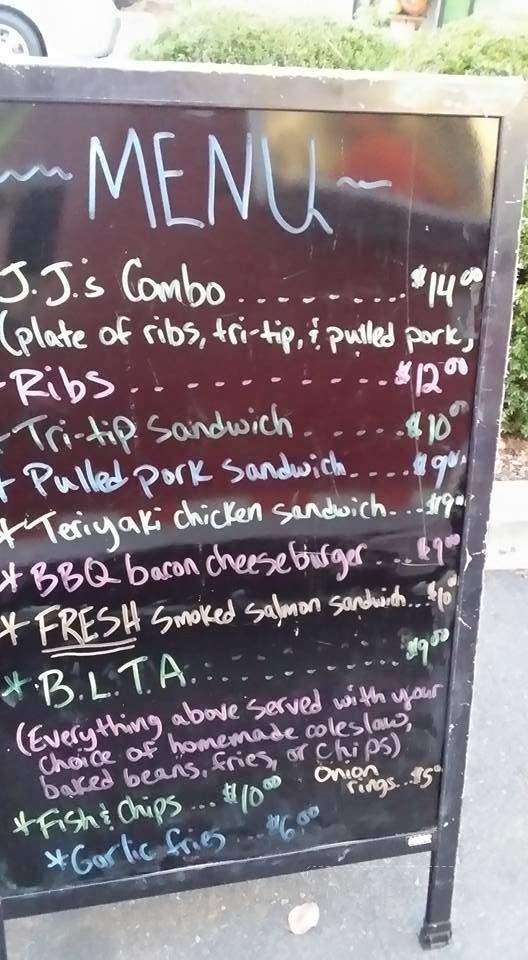 ~ MENU ~
J.J.'s Combo ........ $14.00
(plate of ribs, tri-tip, & pulled pork)
Ribs ........ $12.00
Tri-tip Sandwich ..... $10.00
* Pulled pork Sandwich .... $9.00
* Teriyaki chicken sandwich... $9.00
* BBQ bacon cheeseburger... $9.00
* FRESH Smoked Salmon Sandwich... $10.00
* B.L.T.A. ........ $9.00
(Everything above served with your
choice of homemade coleslaw,
baked beans, fries, or chips)
* Fish & Chips ... $10.00
Onion
rings... $5.00
* Garlic fries ... $6.00